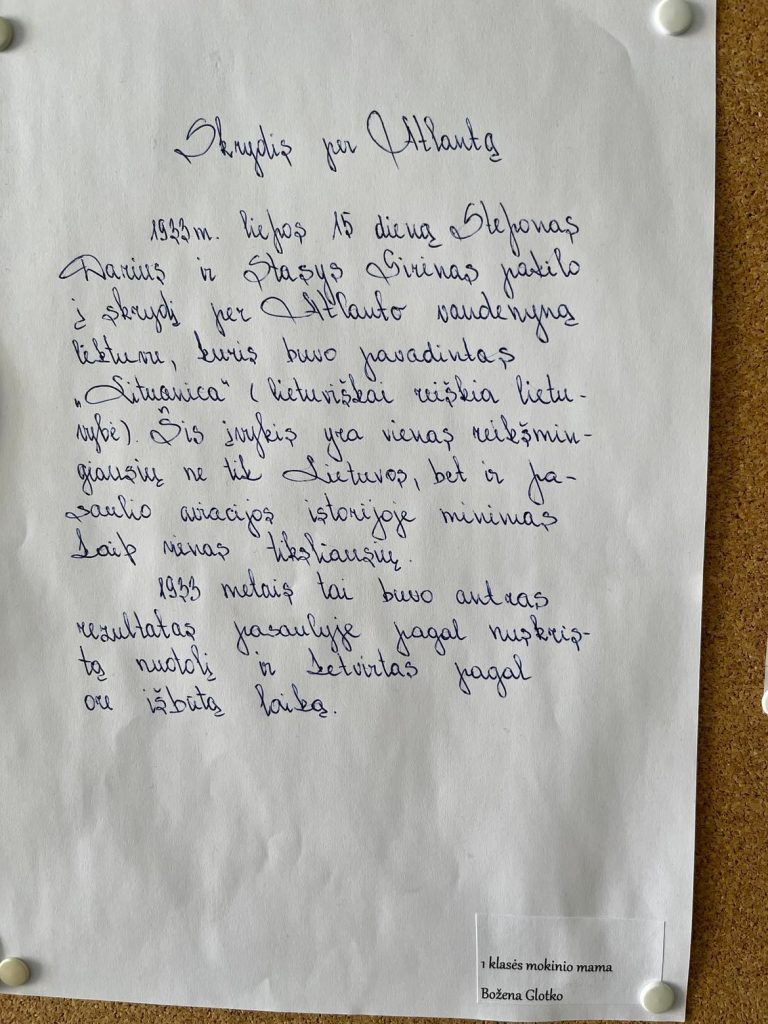 Skrydis per Atlantą
1933 m. liepos 15 dieną Steponas
Darius ir Stasys Girėnas pakilo
į skrydį per Atlanto vandenyną
lėktuvu, kuris buvo pavadintas
„Lituanica“ (lietuviškai reiškia lietu-
vybė). Šis įvykis yra vienas reikšmin-
giausių ne tik Lietuvos, bet ir pa-
saulio aviacijos istorijoje minimas
kaip vienas tiksliausių.
1933 metais tai buvo antras
rezultatas pasaulyje pagal nuskris-
tą nuotolį ir ketvirtas pagal
ore išbūtą laiką.
1 klasės mokinio mama
Božena Glotko